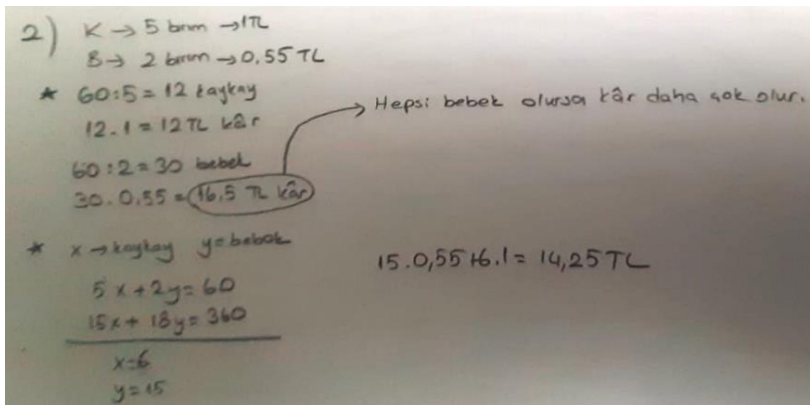 2) K → 5 birim → 1TL
B → 2 birim → 0,55 TL
* 60:5 = 12 kaykay
12.1 = 12 TL kâr
60:2 = 30 bebek
30.0,55 = 16,5 TL kâr
→ Hepsi bebek olursa kâr daha çok olur.
* x → kaykay y = bebek
5x + 2y = 60
15x + 18y = 360
x = 6
y = 15
15.0,55+6.1 = 14,25 TL